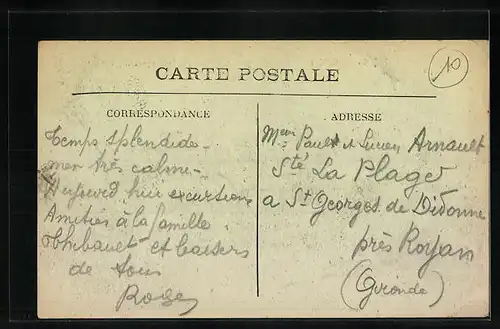 10
CARTE POSTALE
CORRESPONDANCE
Temps splendide -
mer très calme -
Aujourd'hui excursion
Amitiés à la famille
Thibauet et baisers
de tous
Rose
ADRESSE
Paul et Lucien Arnault
Sté La Plage
a St Georges de Didonne
près Royan
(Gironde)